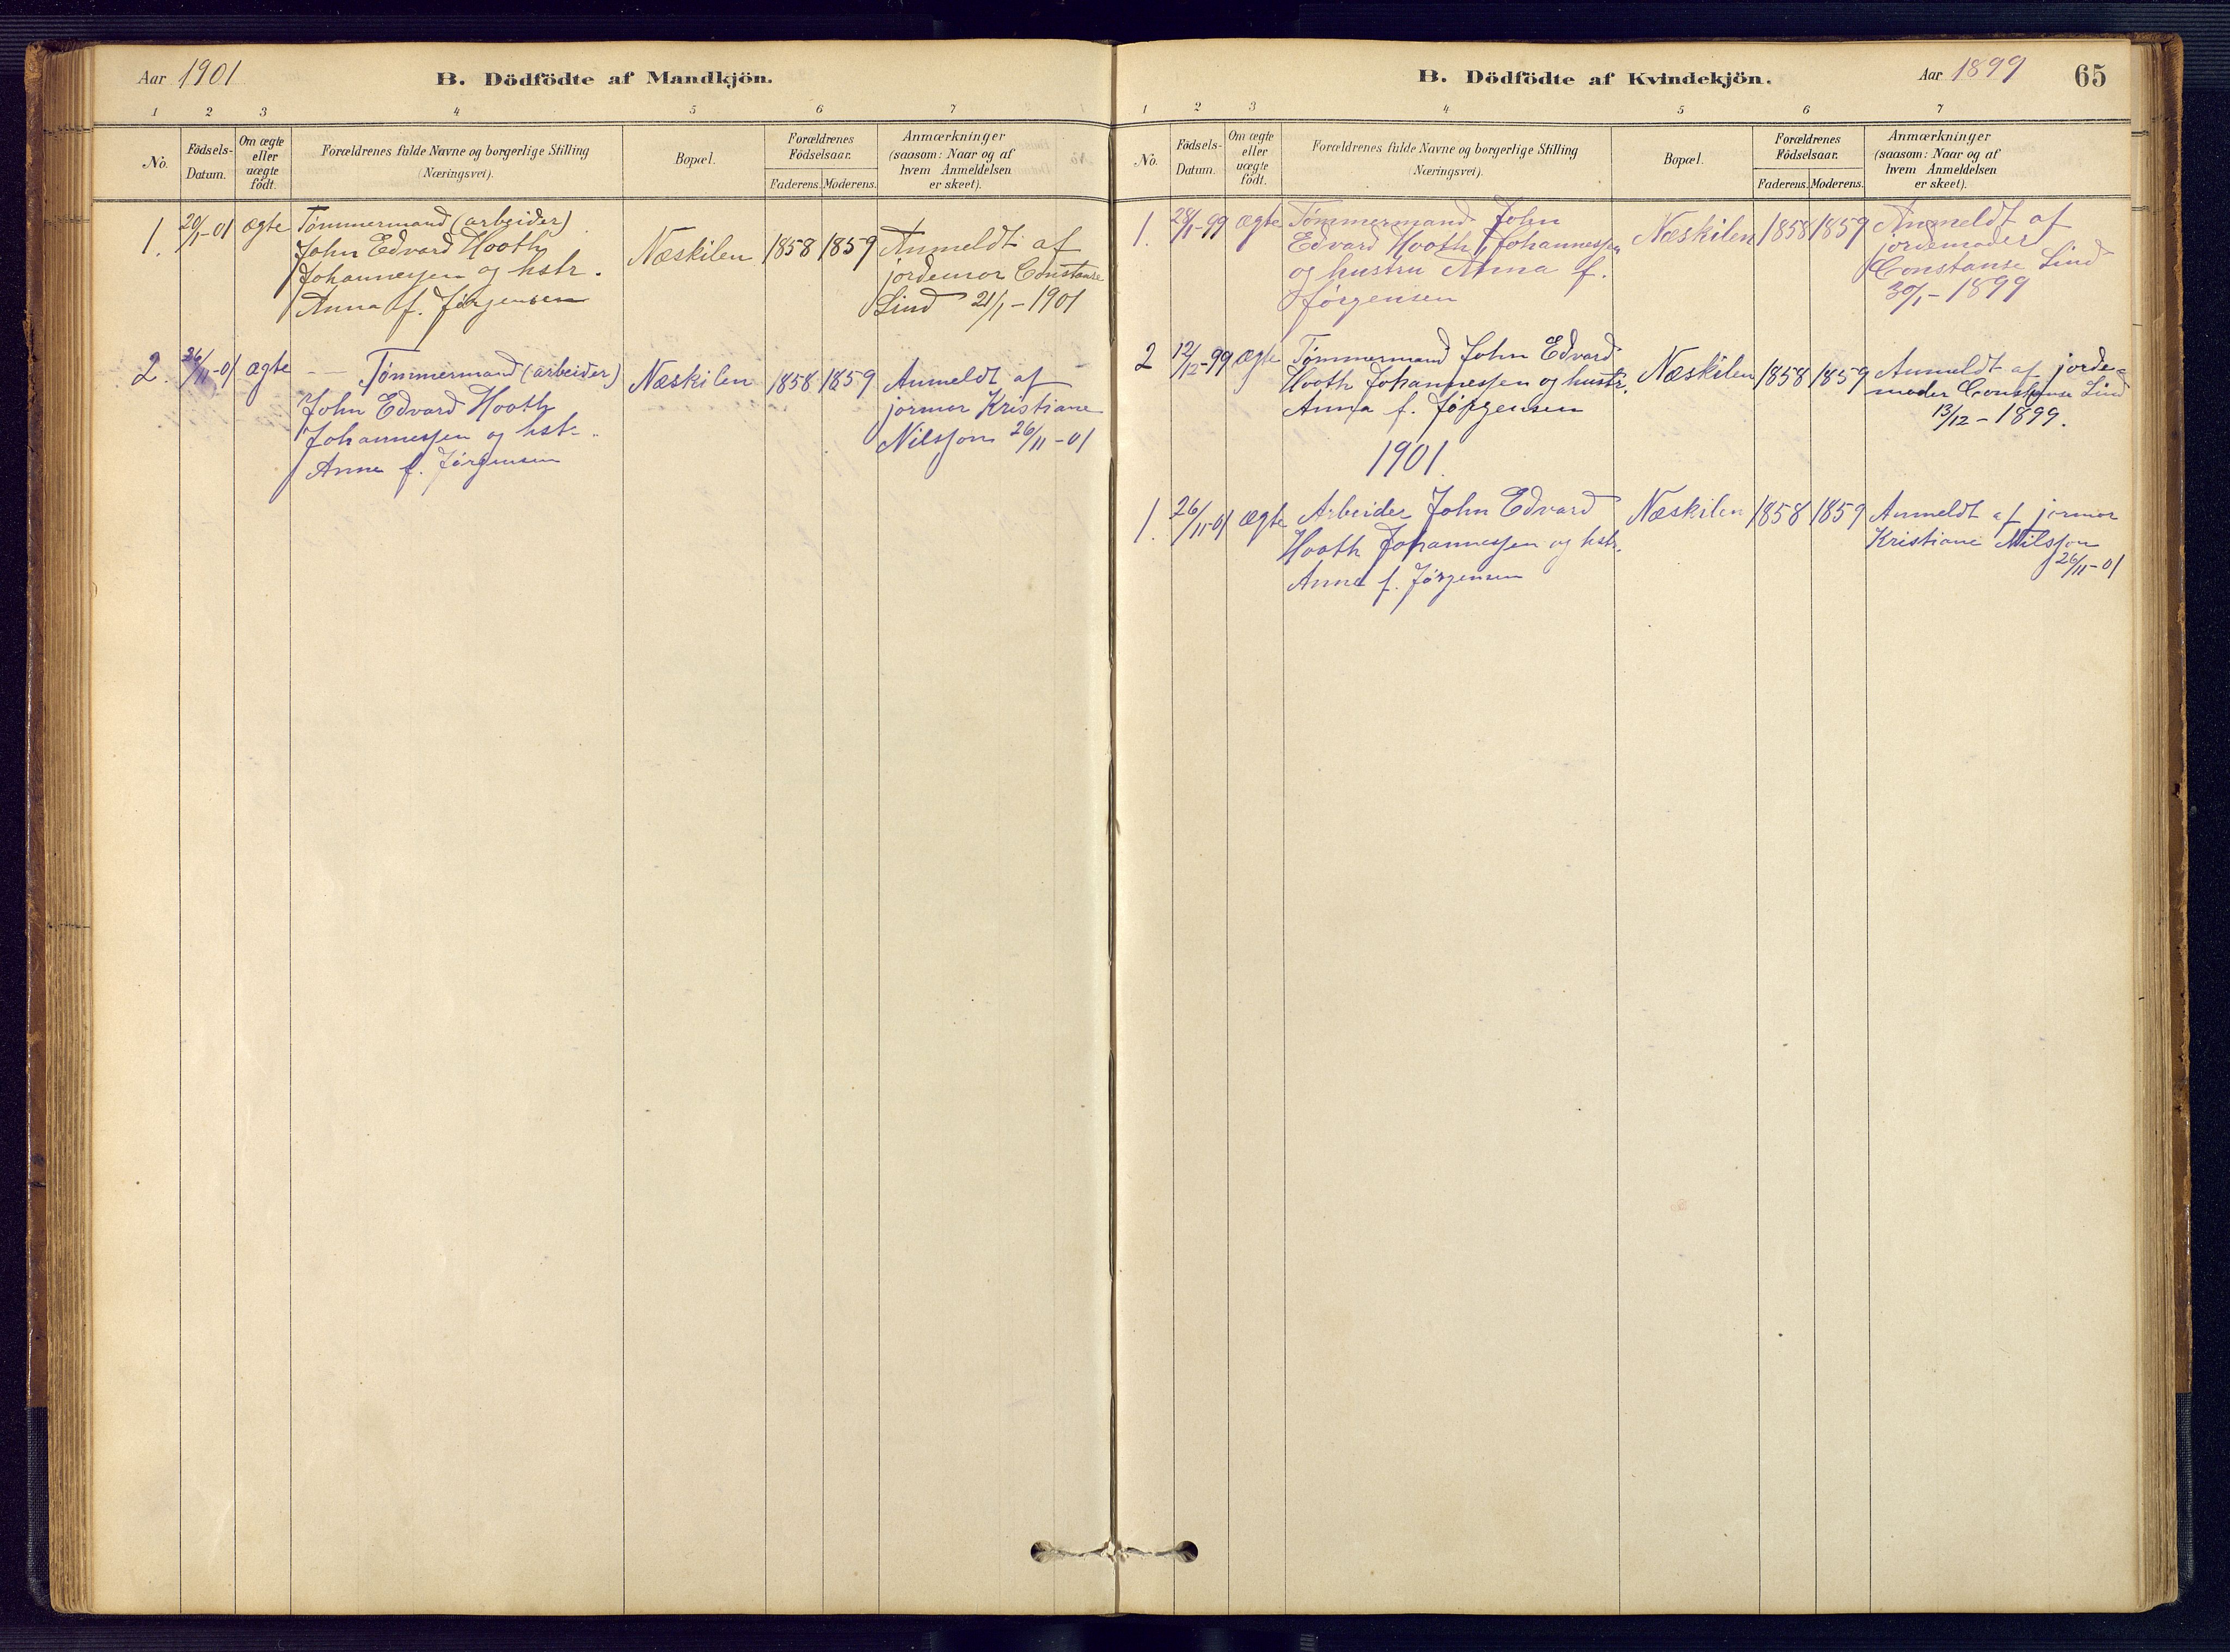 Aar 1901
B. Dödfödte af Mandkjön.
1 2 3 4 5 6 7
No.
Födsels-
Datum.
Om ægte
eller
uægte
födt.
Forældrenes fulde Navne og borgerlige Stilling
(Næringsvei).
Bopæl.
Forældrenes
Födselsaar.
Faderens. Moderens.
Anmærkninger
(saasom: Naar og af
hvem Anmeldelsen
er skeet).
1. 20/1-01 ægte Tømmermand (arbeider)
John Edvard Hooth
Johannessen og hstr.
Anna f. Jørgensen
Næskilen 1858 1859 Anmeldt af
jordemor Constanse
Lind 21/1-1901
2. 26/11-01 ægte Tømmermand (arbeider)
John Edvard Hooth
Johannessen og hstr.
Anna f. Jørgensen
Næskilen 1858 1859 Anmeldt af
jormor Kristiane
Nilsson 26/11-01
B. Dödfödte af Kvindekjön.
Aar 1899
65
1 2 3 4 5 6 7
No.
Födsels-
Datum.
Om ægte
eller
uægte
födt.
Forældrenes fulde Navne og borgerlige Stilling
(Næringsvei).
Bopæl.
Forældrenes
Födselsaar.
Faderens. Moderens.
Anmærkninger
(saasom: Naar og af
hvem Anmeldelsen
er skeet).
1. 28/1-99 ægte Tømmermand John
Edvard Hooth Johannessen
og hustru Anna f.
Jørgensen
Næskilen 1858 1859 Anmeldt af
jordemoder
Constanse Lind
30/1-1899
2 12/12-99 ægte Tømmermand John Edvard
Hooth Johannessen og hustr.
Anna f. Jørgensen
Næskilen 1858 1859 Anmeldt af jorde=
moder Constanse Lind
13/12-1899.
1901.
1. 26/11-01 ægte Arbeider John Edvard
Hooth Johannessen og hstr.
Anna f. Jørgensen
Næskilen 1858 1859 Anmeldt af jormor
Kristiane Nilsson
26/11-01